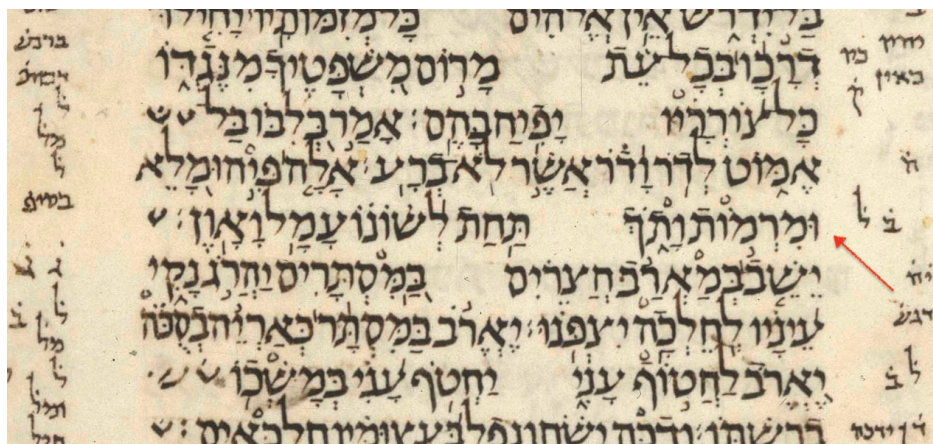 בל ידרש אין אלהים כל מזמותיו יחילו
דְּרָכָו בְּכָל עֵת מָרוֹם מִשְׁפָּטֶיךָ מִנֶּגְדּוֹ
כָּל צוֹרְרָיו יָפִיחַ בָּהֶם׃ אָמַר בְּלִבּוֹ בַּל
אֶמּוֹט לְדֹר וָדֹר אֲשֶׁר לֹא בְרָע׃ אָלָה פִּיהוּ מָלֵא
וּמִרְמוֹת וָתֹךְ תַּחַת לְשׁוֹנוֹ עָמָל וָאָוֶן׃
יֵשֵׁב בְּמַאְרַב חֲצֵרִים בַּמִּסְתָּרִים יַהֲרֹג נָקִי
עֵינָיו לְחֵלְכָה יִצְפֹּנוּ׃ יֶאֱרֹב בַּמִּסְתָּר כְּאַרְיֵה בְסֻכֹּה
יֶאֱרֹב לַחֲטוֹף עָנִי יַחְטֹף עָנִי בְּמָשְׁכוֹ
ברשתו׃ ודכה ישח ונפל בעצומיו חלכאים